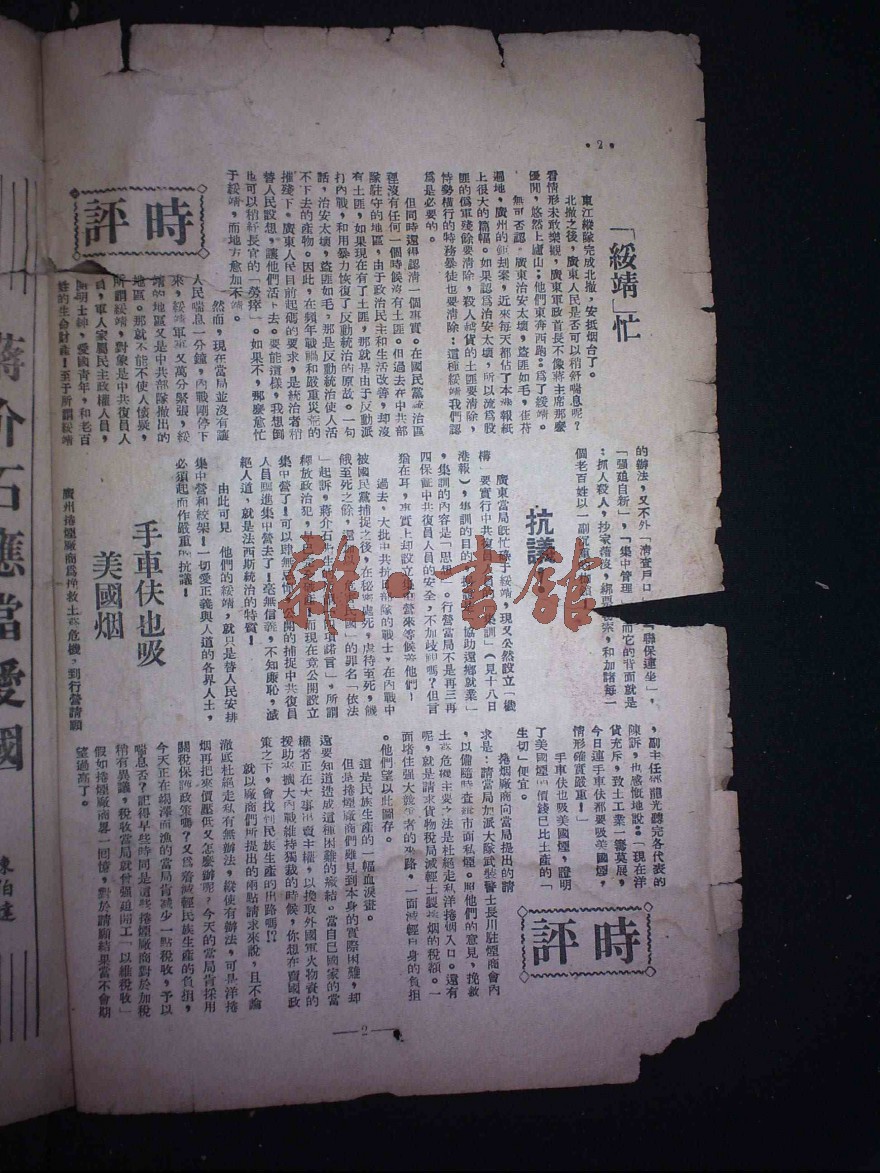 •2•
「綏靖」忙
東江縱隊完成北撤，安抵烟台了。
北撤之後，廣東人民是否可以稍舒喘息呢？
看情形未敢樂觀，廣東軍政首長不像蔣主席那麼
優閒，悠然上廬山；他們東奔西跑：爲了綏靖。
無可否認，廣東治安太壞，盜匪如毛，萑苻
遍地，廣州的
刦案，近來每天都佔了本
報紙
上很大的篇幅。如果認爲治安太壞，所以流爲股
匪的僞軍殘餘要清除，殺人越貨的土匪要清除，
恃勢橫行的特務暴徒也要清除；這種綏靖我們認
爲是必要的。
但同時還得認清一個事實。在國民黨統治區
裡沒有任何一個時候沒有土匪。但過去在中共部
隊駐守的地區，由于政治民主和生活改善，却沒
有土匪，如果現在有了土匪，那就是由于反動派
打內戰，和用暴力恢復了反動統治的原故。一句
話，治安太壞，盜匪如毛，那是反動統治使人活
不下去的產物。因此，在頻年戰禍和嚴重災荒的
摧殘下。廣東人民目前起碼的要求，是統治者稍
替人民設想，讓他們活下去。要能這樣，我想倒
也可以稍紓長官的「勞瘁」。如果不，那麼愈忙
于綏靖，而地方愈加不靖。
時評
然而，現在當局並沒有讓
人民喘息一分鐘，內戰剛停下
來，綏靖軍事又萬分緊張，綏
靖的地區又是中共部隊撤出的
地區。那就不能不使人懷疑，
所謂綏靖，對象是中共復員人
員，軍人家屬民主政權人員，
開明士紳，愛國青年，和老百
姓的生命財產！至于所謂綏靖
的辦法，又不外「清查戶口」，「聯保連坐」，
「强迫自新」，「集中管理」，而它的背面就是
：抓人殺人，抄家蕩沒，綁票
，和加諸每一
個老百姓以一副沉重
抗議！
廣東當局既忙碌于綏靖，現又公然設立「機
構」要實行中共復員
集訓」（見十八日
港報），集訓的目的
協助還鄉就業」
，集訓的內容是「思想
。行營當局不是再三再
四保証中共復員人員的安全，不加歧視嗎？但言
猶在耳，事實上却設立集中營來等候着他們！
過去，大批中共抗日部隊的戰士，在內戰中
被國民黨捕捉之後，在秘密處死，虐待至死，饑
餓至死之餘，還
國」的罪名「依法
」起訴，蔣介石先生
項諾言」，所謂
釋放政治犯，
而現在竟公開設立
集中營了！可以肆無忌憚公開的捕捉中共復員
人員驅進集中營去了！毫無信義，不知廉恥，滅
絕人道，就是法西斯統治的特質！
由此可見　他們的綏靖，就只是替人民安排
集中營和絞架！一切愛正義與人道的各界人士，
必須起而作嚴重的抗議！
手車伕也吸
美國烟
廣州捲煙廠商爲挽救土菸危機，到行營請願
，副主任鄧龍光聽完各代表的
陳訴，也感慨地說：「現在洋
貨充斥，致土工業一籌莫展，
今日連手車伕都要吸美國煙，
情形確實嚴重！」
手車伕也吸美國煙，證明
了美國煙的價錢已比土產的「
生切」便宜。
時評
捲烟廠商向當局提出的請
求是：請當局加派大隊武裝警士長川駐煙商會內
，以備隨時查緝市面私煙。照他們的意見，挽救
土菸危機主要之法是杜絕走私洋捲烟入口。還有
呢，就是請求貨物稅局減輕土製捲烟的稅額。一
面堵住强大競爭者的來路，一面減輕自身的負担
。他們望以此圖存。
這是民族生產的一幅血淚畫。
但是捲煙廠商們雖見到本身的實際困難，却
還要知道造成這種困難的癥結。當自己國家的當
權者正在大事出賣主權，以換取外國軍火物資的
援助來擴大內戰維持獨裁的時候，你想在賣國政
策之下，會找到民族生產的出路嗎!?
就以廠商們所提出的兩點請求來說，且不論
澈底杜絕走私有無辦法，縱使有辦法，可是洋捲
烟再把來價壓低又怎麼辦呢？今天的當局肯採用
關稅保護政策嗎？又爲着減輕民族生產的負担，
今天正在竭澤而漁的當局肯減少一點稅收，予以
喘息否？記得早些時同是這些捲煙廠商對於加稅
稍有異議，稅收當局就曾强迫開工「以維稅收」
假如捲煙廠商畧一回憶，對於請願結果當不會期
望過高了。
—2—
蔣介石應當愛國
雜·書館